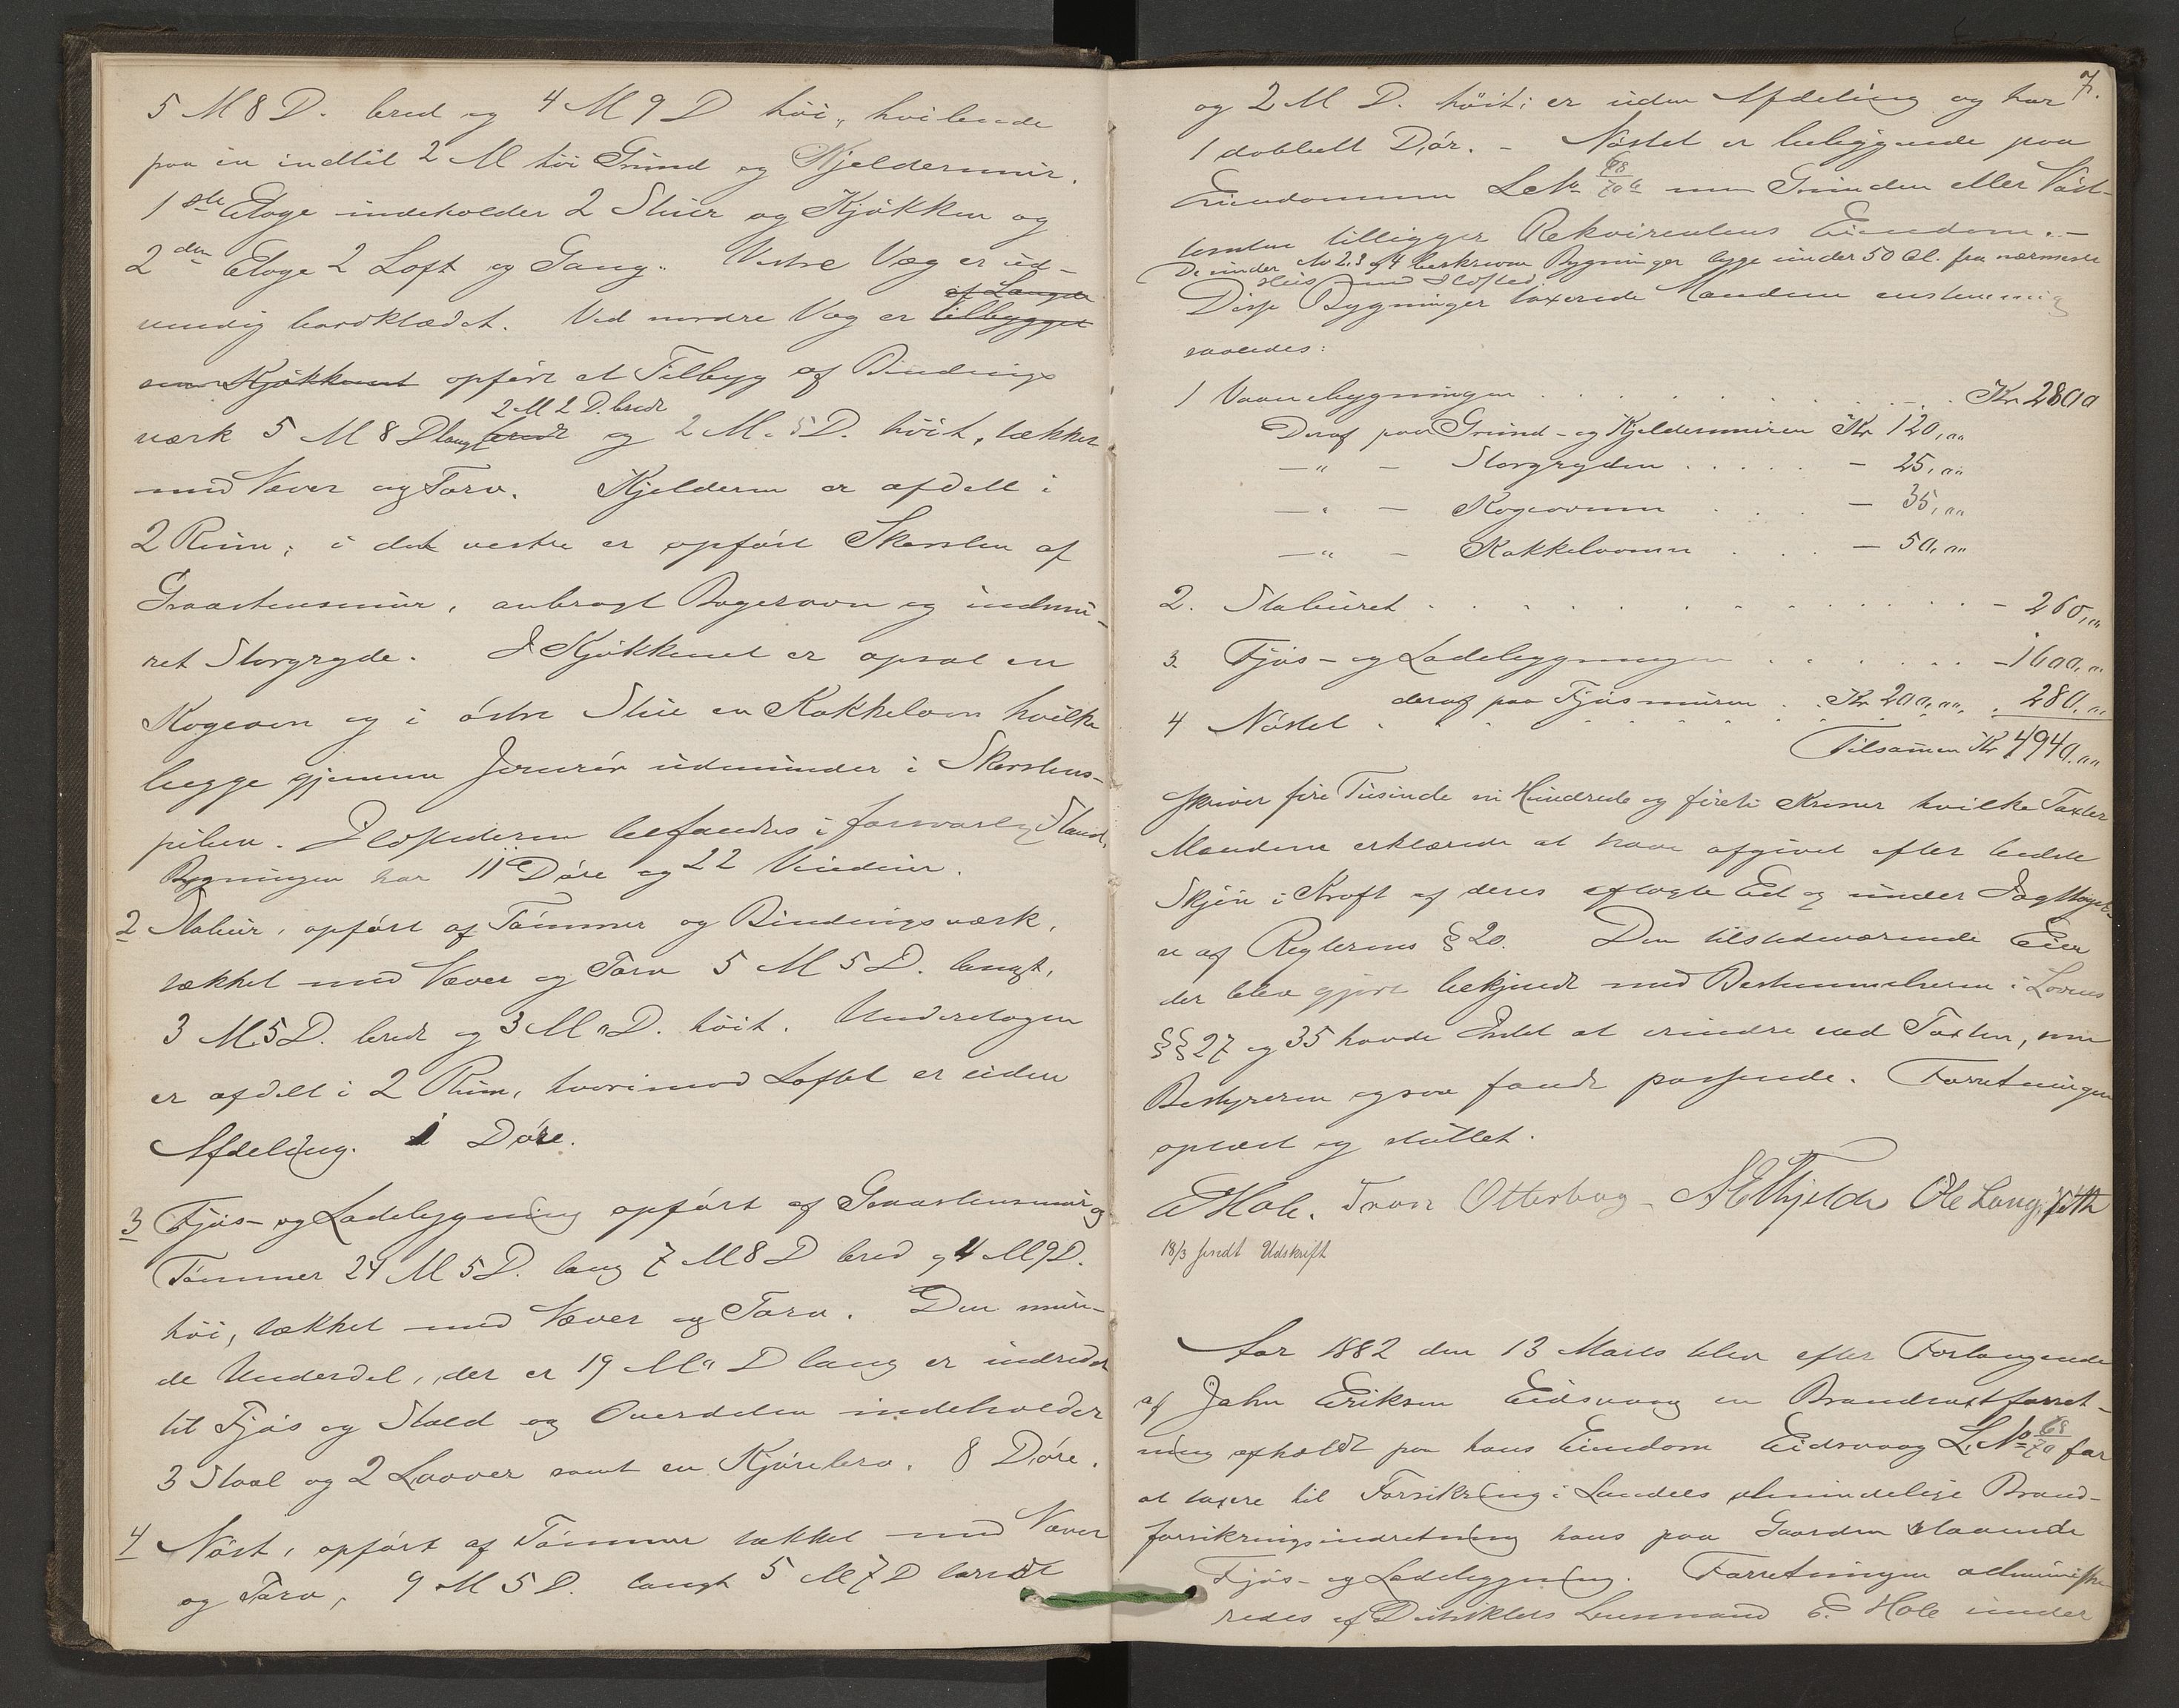 5 M 8 D. bred og 4 M 9 D høi, hvilende
paa en indtil 2 M høi Grund og Kjeldermur.
1ste Etage indeholder 2 Stuer og Kjøkken og
2den Etage 2 Loft og Gang. Vestre Væg er ud-
af Længde
vendig bordklædet. Ved nordre Væg er tilbygget
som Kjøkkenet opført et Tilbyg af Bindings
2 M 2 D. bredt
værk 5 M 8 D langt bredt og 2 M. 5 D. høit, tækket
med Næver og Torv. Kjelderen er afdelt i
2 Rum; i det vestre er opført Skorsten af
Graastensmur, anbragt Bagerovn og indmu-
ret Storgryde. I Kjøkkenet er opsat en
Kogeovn og i østre Stue en Kakkelovn hvilke
begge gjennem Jernrør udmunder i Skorstens-
piben. Ildstederne befandtes i forsvarlig Stand.
Bygningen har 11 Døre og 22 Vinduer.
2 Stabur, opført af Tømmer og Bindingsværk,
tækket med Næver og Torv 5 M 5 D. langt,
3 M. 5 D. bredt og 3 M " D. høit. Underetagen
er afdelt i 2 Rum, hvorimod Loftet er uden
Afdeling. 1 Døre.
3 Fjøs- og Ladebygning opført af Graastensmur og
Tømmer 24 M 5 D. lang 7 M 8 D bred og 4 M 9 D.
høi, tækket med Næver og Torv. Den mure-
de Underdel, der er 19 M " D lang er indredet
til Fjøs og Stald og Overdelen indeholder
3 Staal og 2 Laaver samt en Kjørebro. 8 Døre.
4 Nøst, opført af Tømmer tækket med Næver
og Torv, 9 M 5 D. langt 5 M 7 D bredt
7.
og 2 M D. høit; er uden Afdeling og har
1 dobbelt Dør. - Nøstet er beliggende paa
Eiendommen L№ 68/70a men Grunden eller Nøst-
tomten tilligger Rekvirentens Eiendom. -
De under № 2, 3 og 4 beskrevne Bygninger ligge under 50 Al. fra nærmeste
Huse med Ildsted.
Disse Bygninger taxerede Mændene enstemmig
saaledes:
1 Vaanebygningen . . . . . . . . Kr 2800
Deraf paa Grund- og Kjeldermuren Kr 120,00
—"— - Storgryden . . . . . - 25,00
—"— - Kogeovnen . . . — 35,00
—"— - Kakkelovnen . . . — 50,00
2. Staburet . . . . . . . . . . . . . - 260,00
3. Fjøs- og Ladebygningen . . . . . . - 1600,00
deraf paa Fjøsmuren . . Kr 200,00
4 Nøstet . . . . . . . . . . 280,00
Tilsammen Kr 4940,00
skriver fire Tusinde ni Hundrede og fireti Kroner hvilke Taxter
Mændene erklærede at have afgivet efter bedste
Skjøn i Kraft af deres aflagte Ed og under Iagttagel-
se af Reglernes § 20. Den tilstedeværende Eier
der blev gjort bekjendt med Bestemmelserne i Lovens
§§ 27 og 35 havde Intet at erindre ved Taxten, som
Bestyreren ogsaa fandt passende. Forretningen
oplæst og sluttet.
E Hole. Iver Otterbeg - Ole Lang
18/3 sendt Udskrift
Aar 1882 den 13 Marts blev efter Forlangende
af John Eriksen Eidsvaag en Brandtaxtforret-
ning afholdt paa hans Eiendom Eidsvaag L.№ 68/70 for
at taxere til Forsikring i Landets almindelige Brand-
forsikringsindretning hans paa Gaarden staaende
Fjøs- og Ladebygning. Forretningen administre-
redes af Distriktets Lensmand E. Hole under